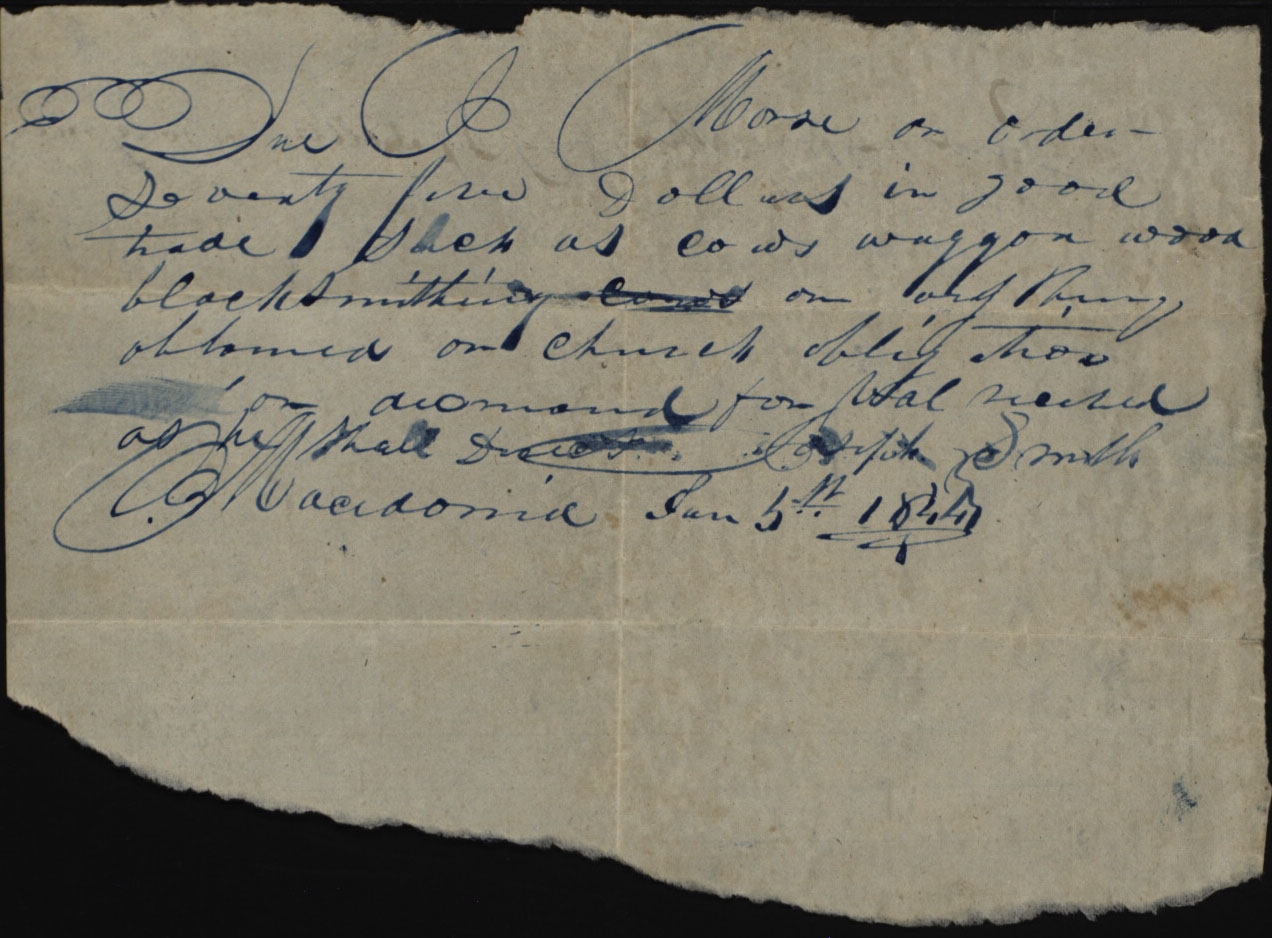 Due J C Morse or order
Seventy five Dollars in good
trade Such as cows waggon wood
blacksmithing cows or any thing
obtained on church obligation
on demand for val recived
as he Shall Direct Joseph Smith
Macedonia Jan 5th. 1844